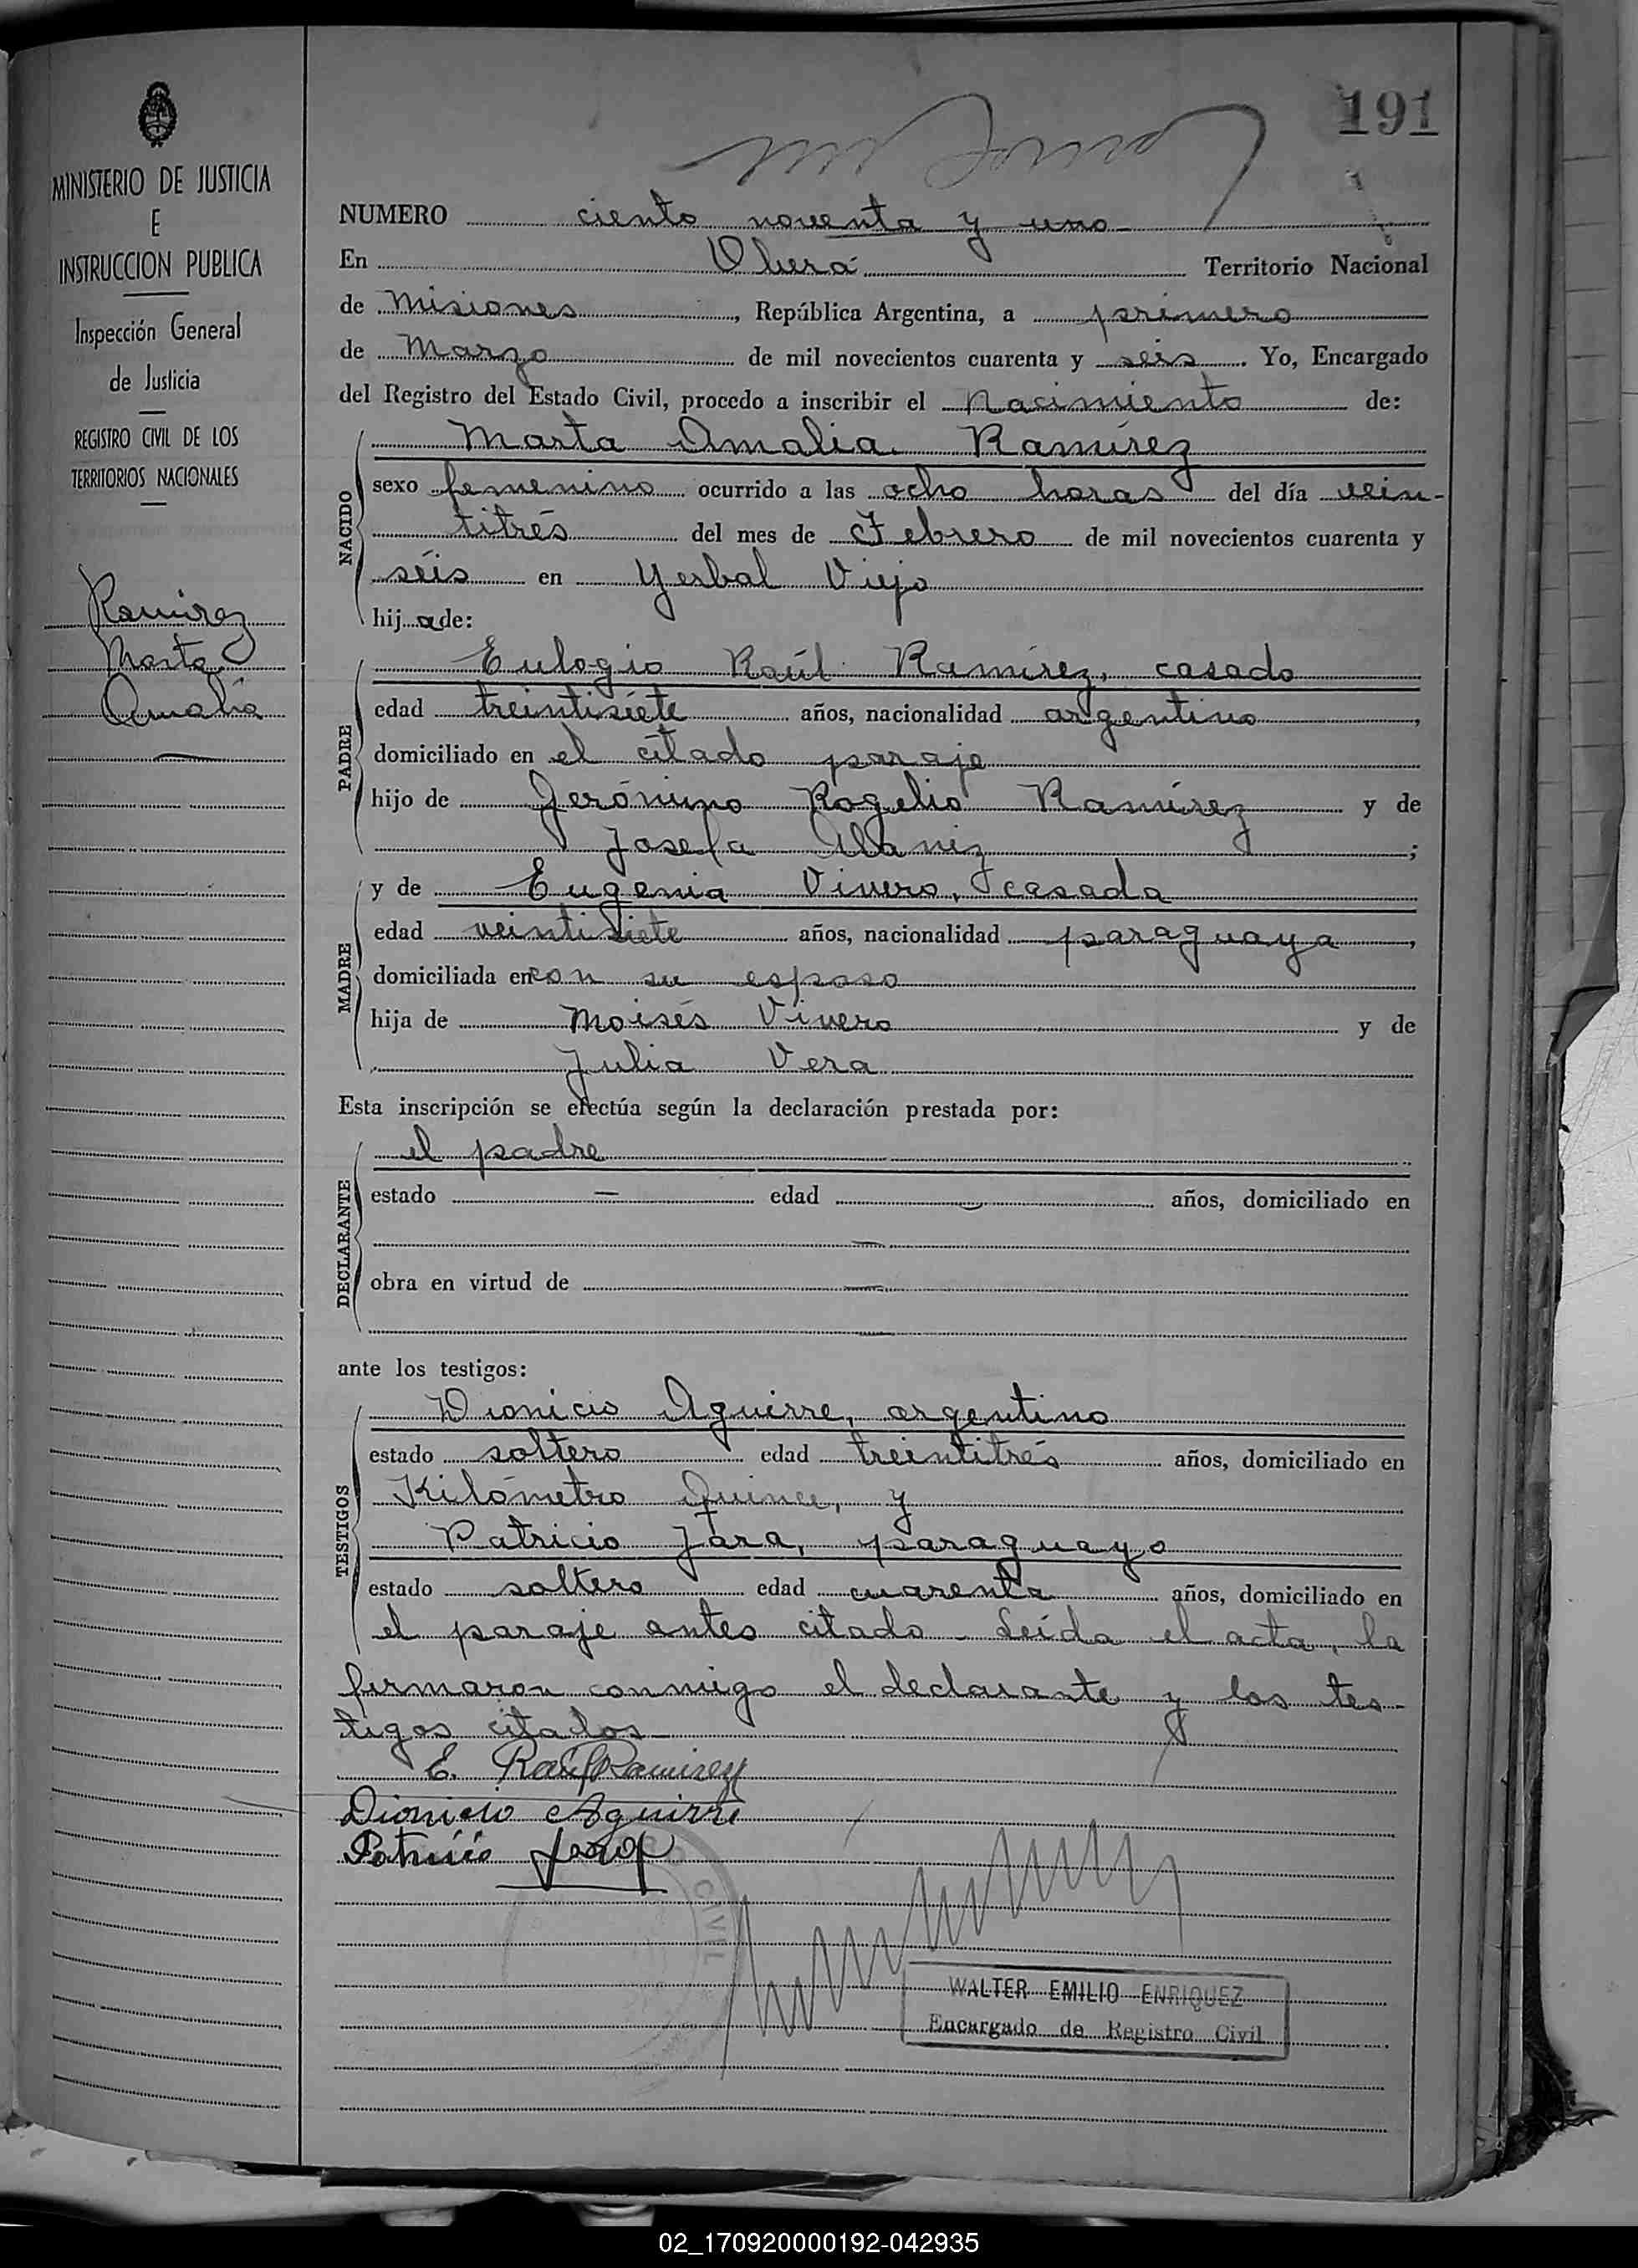 191
MINISTERIO DE JUSTICIA
E
INSTRUCCION PUBLICA
Inspección General
de Justicia
REGISTRO CIVIL DE LOS
TERRITORIOS NACIONALES
Ramirez
Marta
Amalia
NUMERO ciento noventa y uno
En Oberá Territorio Nacional
de Misiones, República Argentina, a primero
de Marzo de mil novecientos cuarenta y seis. Yo, Encargado
del Registro del Estado Civil, procedo a inscribir el Nacimiento de:
NACIDO
Marta Amalia Ramírez
sexo femenino ocurrido a las ocho horas del día vein-
titrés del mes de Febrero de mil novecientos cuarenta y
séis en Yerbal Viejo
hij a de:
PADRE
Eulogio Raúl Ramírez, casado
edad treintisiete años, nacionalidad argentino,
domiciliado en el citado paraje
hijo de Jerónimo Rogelio Ramírez y de
Josefa Alaniz;
MADRE
y de Eugenia Vivero, casada
edad veintisiete años, nacionalidad paraguaya,
domiciliada en con su esposo
hija de Moisés Vivero y de
Julia Vera
Esta inscripción se efectúa según la declaración prestada por:
DECLARANTE
el padre
estado — edad — años, domiciliado en
—
obra en virtud de —
—
ante los testigos:
TESTIGOS
Dionicio Aguirre, argentino
estado soltero edad treintitrés años, domiciliado en
Kilómetro Quince, y
Patricio Jara, paraguayo
estado soltero edad cuarenta años, domiciliado en
el paraje antes citado - Leída el acta, la
firmaron conmigo el declarante y los tes-
tigos citados
E. Raúl Ramirez
Dionicio Aguirre
Patricio Jara
CIVIL
WALTER EMILIO ENRIQUEZ
Encargado de Registro Civil
02_170920000192-042935